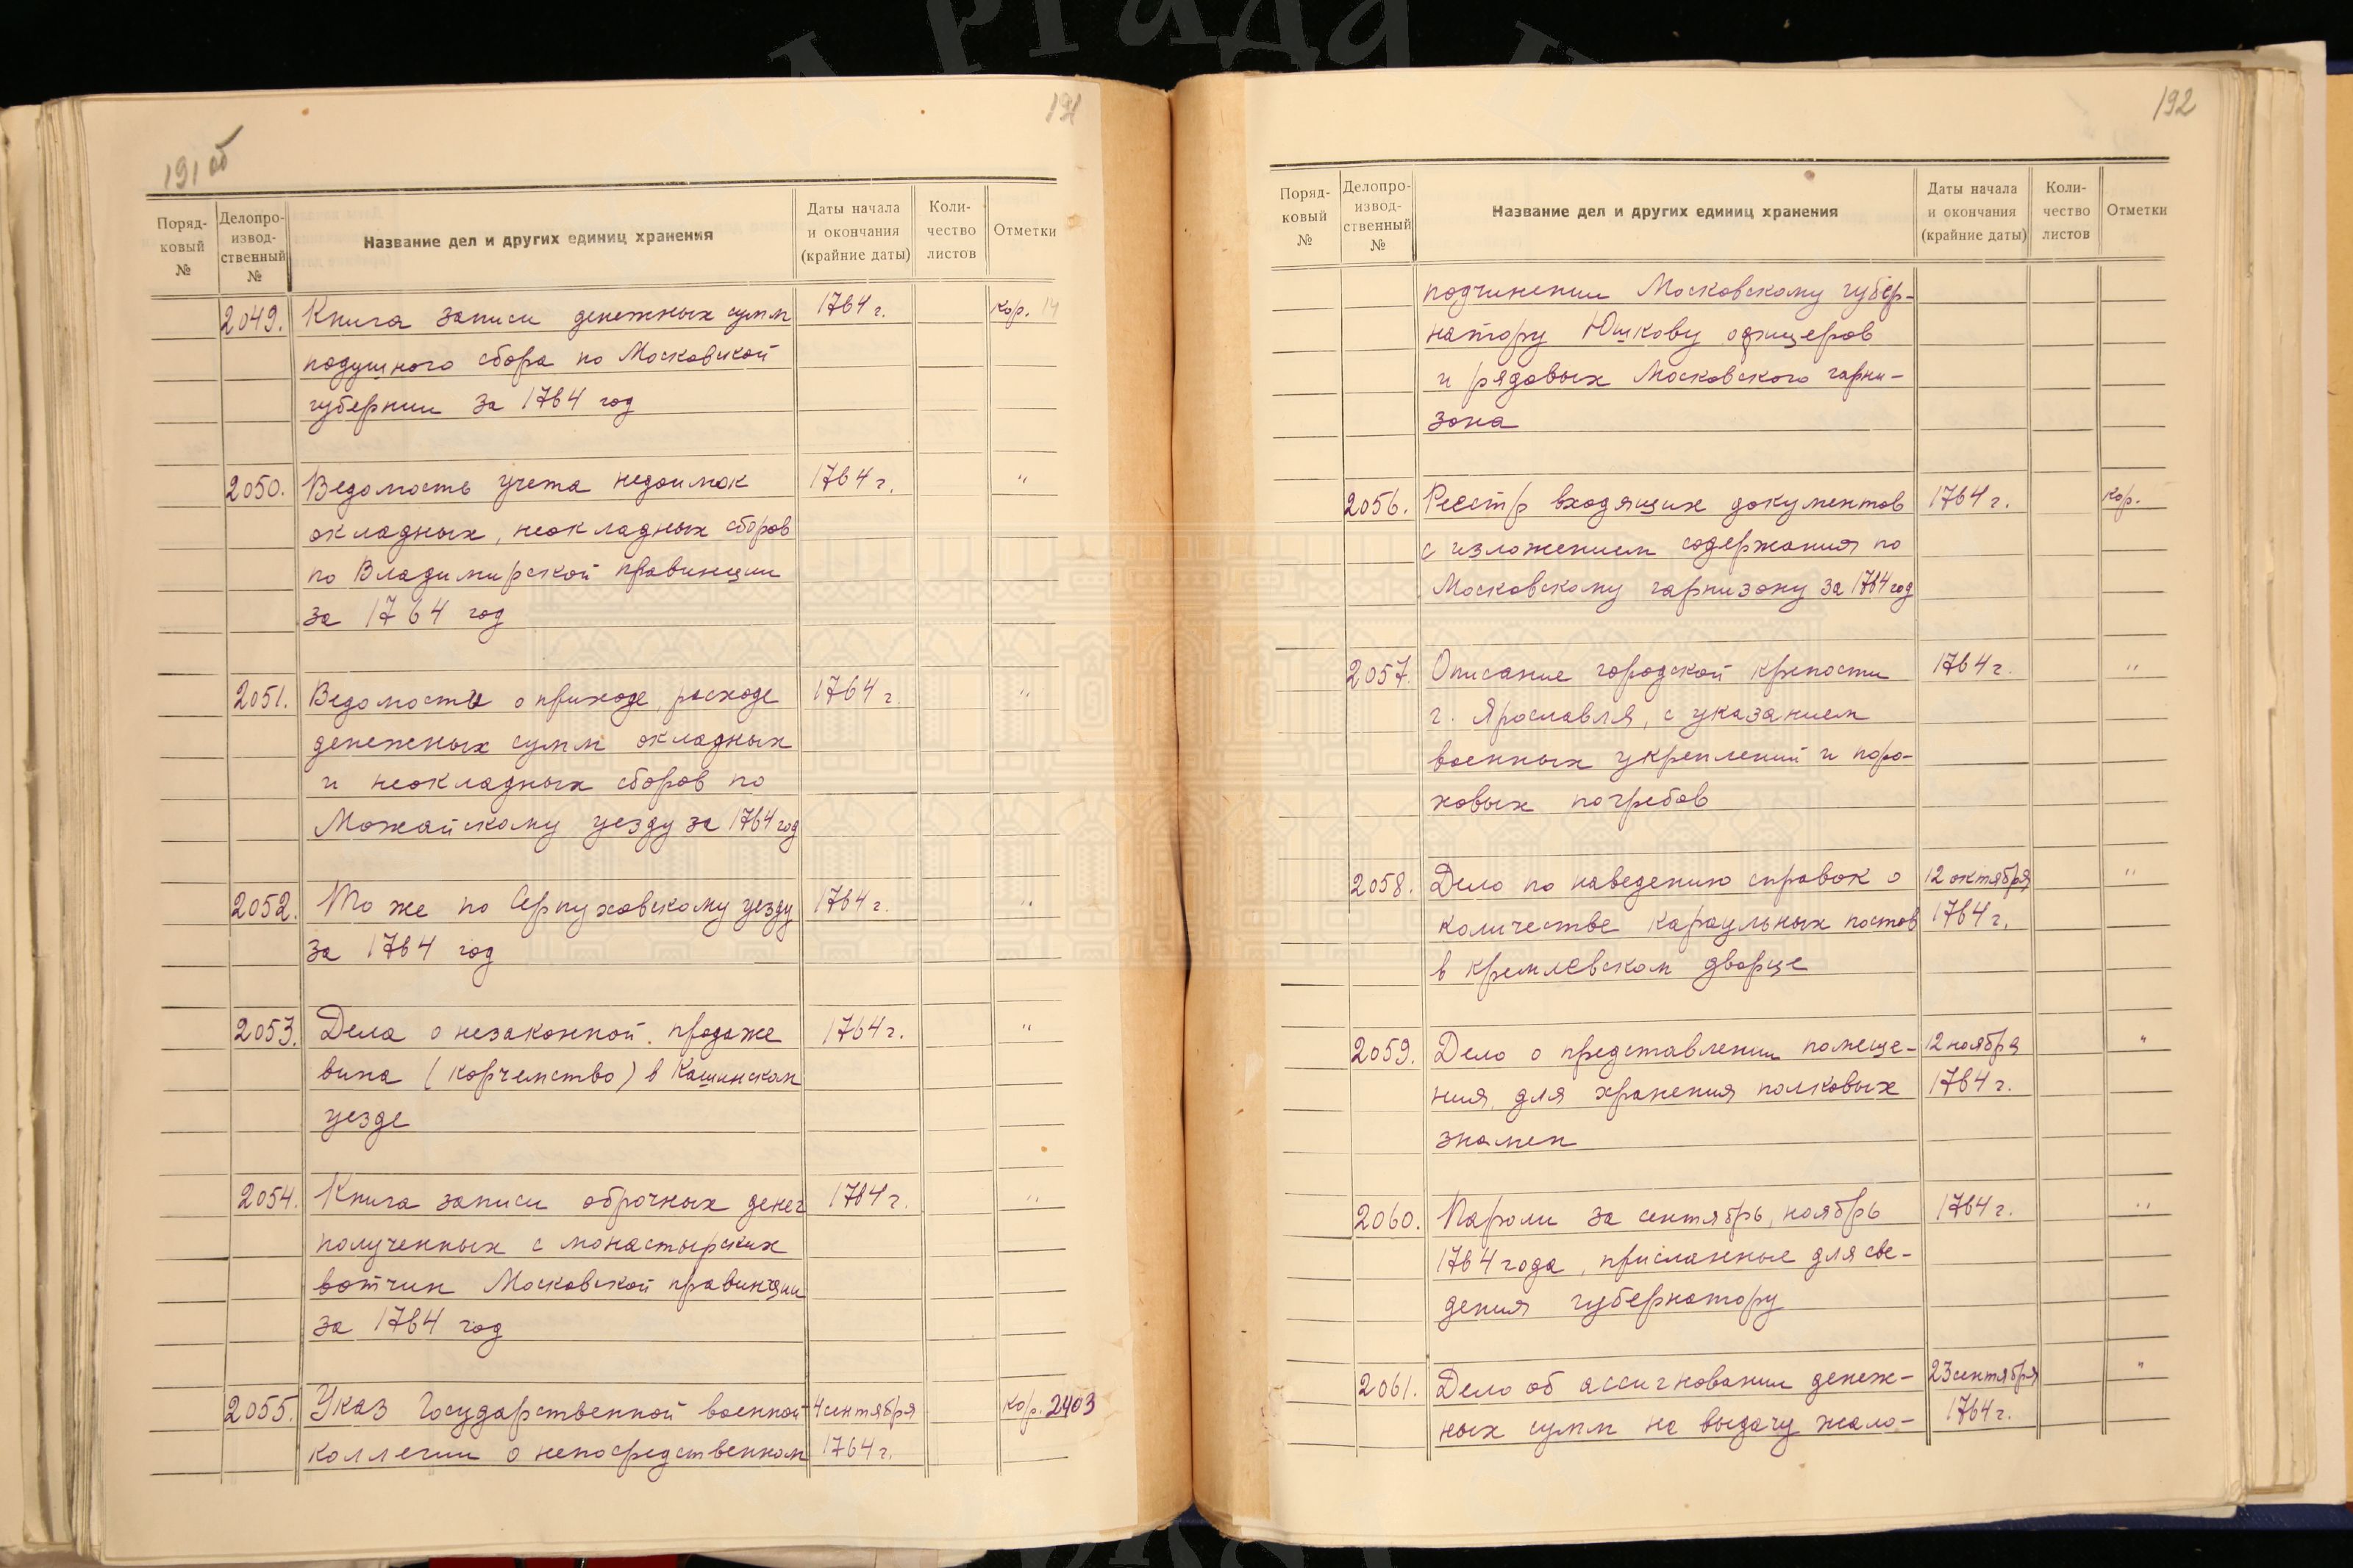 191 об
191
Поряд-
ковый
№
Делопро-
извод-
ственный
№
Название дел и других единиц хранения
Даты начала
и окончания
(крайние даты)
Коли-
чество
листов
Отметки
2049. Книга записи денежных сумм 1764 г. кор. 14
подушного сбора по Московской
губернии за 1764 год
2050. Ведомость учета недоимок 1764 г. "
окладных, неокладных сборов
по Владимирской провинции
за 1764 год
2051. Ведомости о приходе, расходе 1764 г. "
денежных сумм окладных
и неокладных сборов по
Можайскому уезду за 1764 год
2052. То же по Серпуховскому уезду 1764 г. "
за 1764 год
2053. Дела о незаконной продаже 1764 г. "
вина (корчемство) в Кашинском
уезде
2054. Книга записи оброчных денег 1764 г. "
полученных с монастырских
вотчин Московской провинции
за 1764 год
2055. Указ Государственной военной 4 сентября кор. 2403
коллегии о непосредственном 1764 г.
192
Поряд-
ковый
№
Делопро-
извод-
ственный
№
Название дел и других единиц хранения
Даты начала
и окончания
(крайние даты)
Коли-
чество
листов
Отметки
подчинении Московскому губер-
натору Юшкову офицеров
и рядовых Московского гарни-
зона
2056. Реестр входящих документов 1764 г. кор.
с изложением содержания по
Московскому гарнизону за 1764 год
2057. Описание городской крепости 1764 г. "
г. Ярославля, с указанием
военных укреплений и поро-
ховых погребов
2058. Дело по наведению справок о 12 октября "
количестве караульных постов 1764 г.
в кремлевском дворце
2059. Дело о представлении помеще- 12 ноября "
ния для хранения полковых 1764 г.
знамен
2060. Пароли за сентябрь, ноябрь 1764 г. "
1764 года, присланные для све-
дения губернатору
2061. Дело об ассигновании денеж- 23 сентября "
ных сумм на выдачу жало- 1764 г.